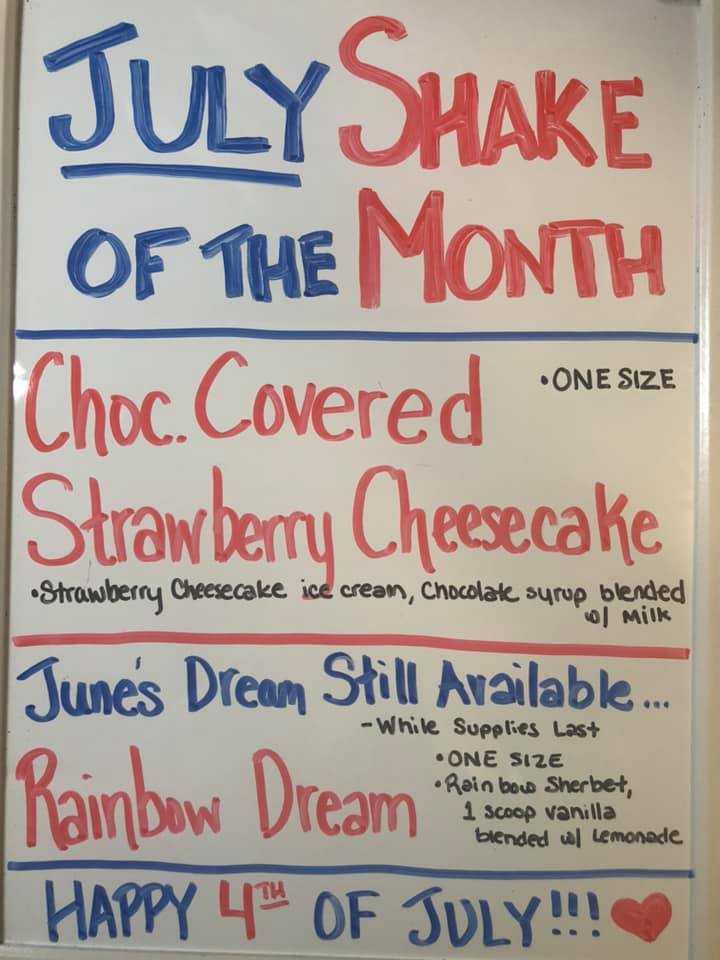 JULY SHAKE
OF THE MONTH
Choc. Covered
•ONE SIZE
Strawberry Cheesecake
•Strawberry Cheesecake ice cream, Chocolate syrup blended
w/ Milk
June's Dream Still Available...
-While Supplies Last
Rainbow Dream
•ONE SIZE
•Rainbow Sherbet,
1 scoop vanilla
blended w/ Lemonade
HAPPY 4TH OF JULY!!! ❤